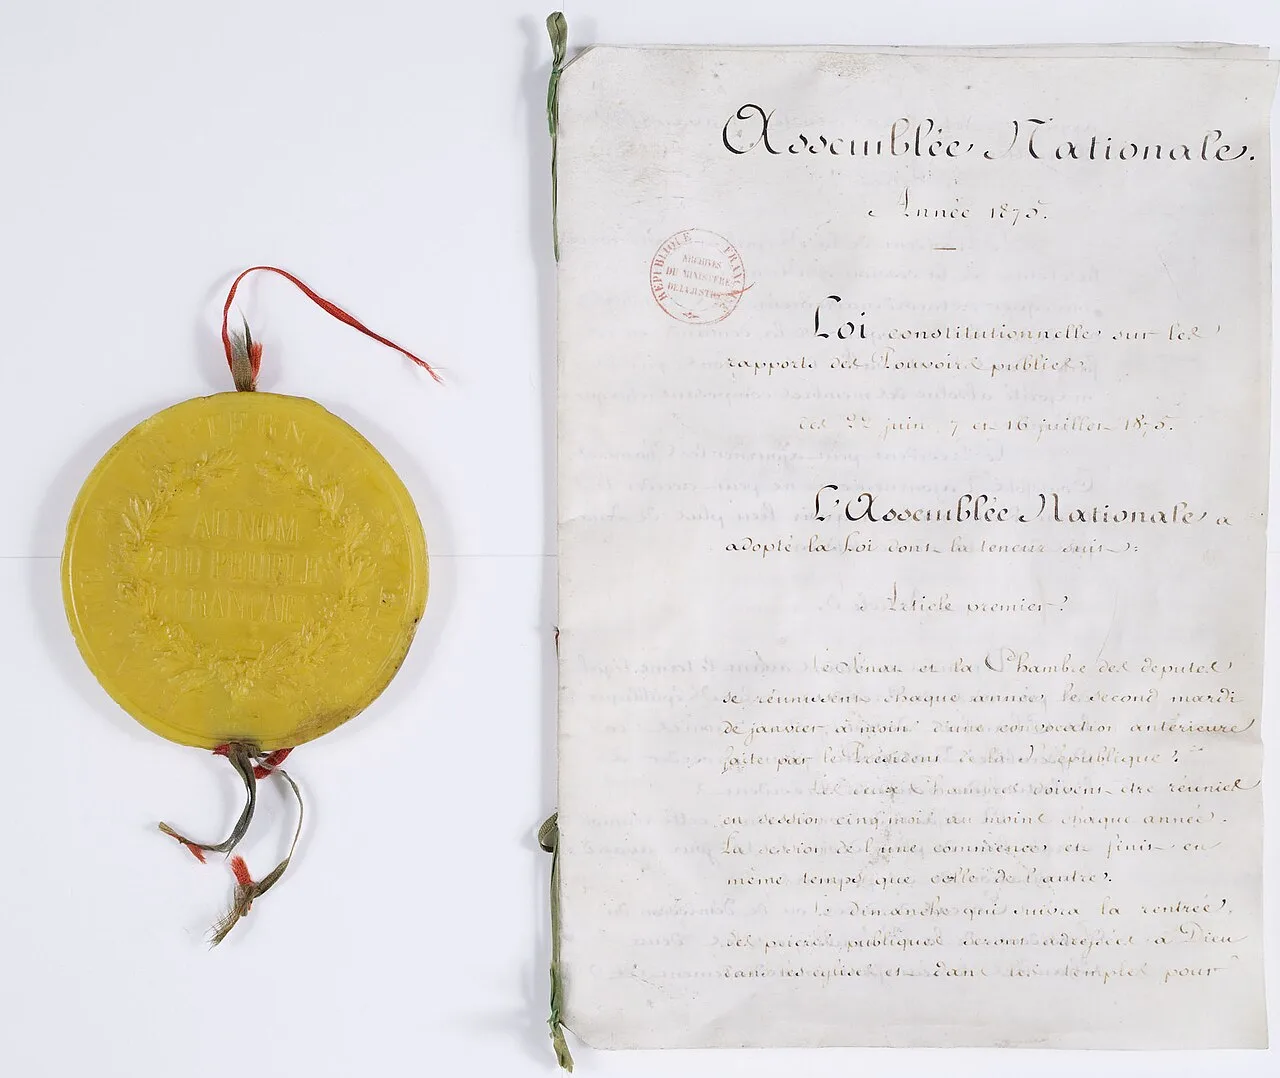 AU NOM
DU PEUPLE
FRANÇAIS
Assemblée Nationale.
Année 1875.
RÉPUBLIQUE FRANÇAISE
ARCHIVES
DU MINISTÈRE
DE LA JUSTICE
Loi constitutionnelle sur les
rapports des Pouvoirs publics
des 22 juin, 7 et 16 juillet 1875.
L'Assemblée Nationale a
adopté la Loi dont la teneur suit:
Article premier.
Le Sénat et la Chambre des députés
se réunissent chaque année, le second mardi
de janvier, à moins d'une convocation antérieure
faite par le Président de la République.
Les deux Chambres doivent être réunies
en session cinq mois au moins chaque année.
La session de l'une commence et finit en
même temps que celle de l'autre.
Le dimanche qui suivra la rentrée,
des prières publiques seront adressées à Dieu
dans les églises et dans les temples pour